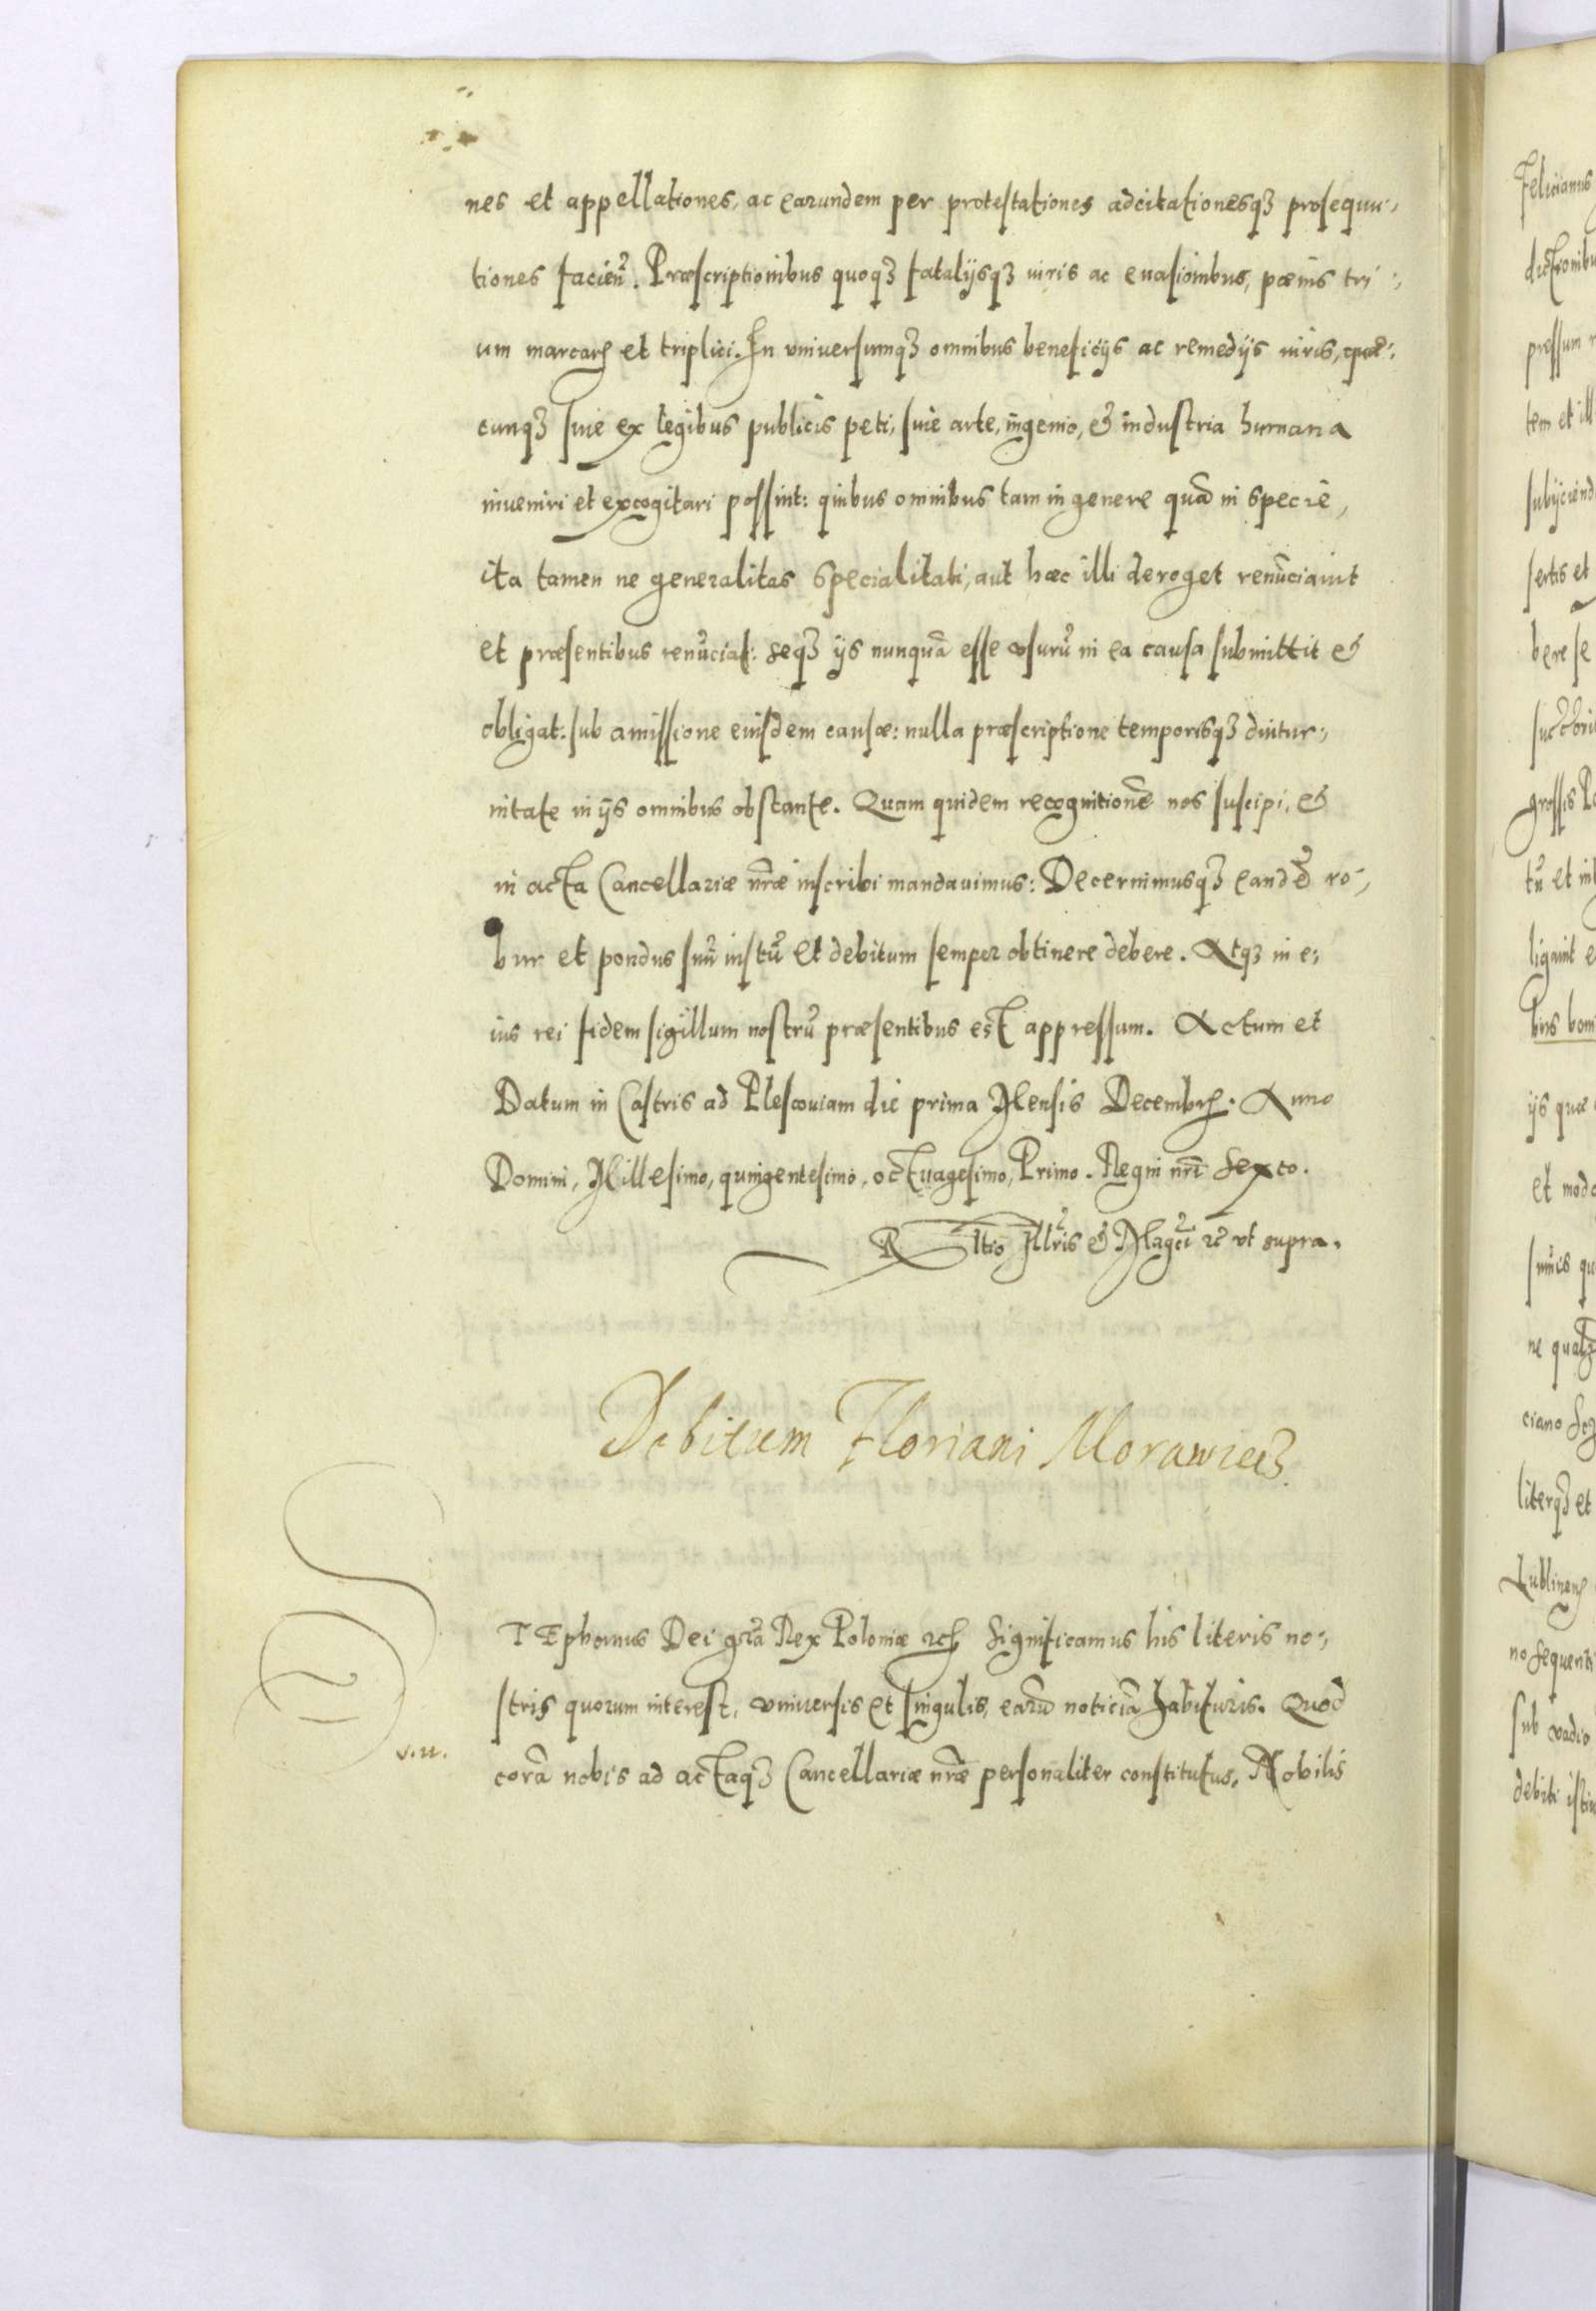 nes et appellationes, ac earundem per protestationes adcitationesqꝫ prosequu-
tiones facieñ. Præscriptionibus quoqꝫ fatalijsqꝫ iuris ac euasionibus, pœnis tri-
um marcarꝫ et triplici. In vniuersumqꝫ omnibus beneficijs ac remedijs iuris, quæ-
cunqꝫ siue ex legibus publicis peti, siue arte, ingenio, & industria humana
inueniri et excogitari possint: quibus omnibus tam in genere quā in specie,
ita tamen ne generalitas specialitati, aut hæc illi deroget renūciauit
et præsentibus renūciat: seqꝫ ijs nunquā esse vsurū in ea causa submittit &
obligat: sub amissione eiusdem causæ: nulla præscriptione temporisqꝫ diutur-
nitate in ijs omnibus obstante. Quam quidem recognitionē nos suscipi, &
in acta Cancellariæ nr̄æ inscribi mandauimus: Decernimusqꝫ eandē ro-
bur et pondus suū iustū et debitum semper obtinere debere. Atqꝫ in e-
ius rei fidem sigillum nostrū præsentibus est appressum. Actum et
Datum in Castris ad Plescouiam die prima Mensis Decembrꝫ. Anno
Domini, Millesimo, quingentesimo, octuagesimo, Primo. Regni nr̄i Sexto.
R ltio Illris & Magci ꝛc vt supra.
Debitum Floriani Morawiecz
S
v.n.
TEphanus Dei gr̄a Rex Poloniæ ꝛcꝫ Significamus his literis no-
stris quorum interest, vniuersis et singulis, earū noticiā habituris. Quod
corā nobis ad actaqꝫ Cancellariæ nr̄æ personaliter constitutus, Nobilis
Felicianus
pressum
tem et ill
sertis et
bere se
grossis
tū et
ligauit
ijs quæ
et modo
ciano
literqꝫ et
no sequenti
sub vadio
debiti